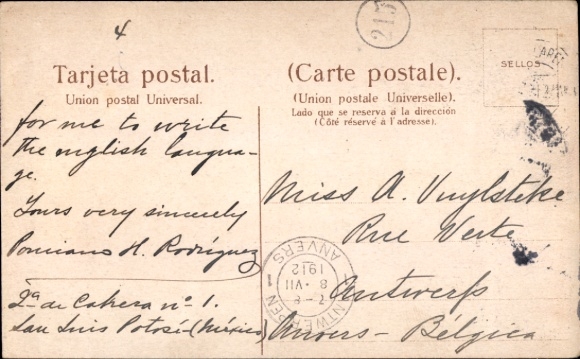 4
213
Tarjeta postal.
Union postal Universal.
(Carte postale).
(Union postale Universelle).
Lado que se reserva a la dirección
(Côté réservé à l'adresse).
SELLOS
for me to write
the english langua-
ge.
Yours very sincerely
Ponciano H. Rodríguez
2ª de Cabrera nº 1.
San Luis Potosí (México)
Miss A. Vuylsteke
Rue Verte
Antwerp
Anvers - Belgica
ANTWERPEN 1
7-8
8 · VII
1912
ANVERS